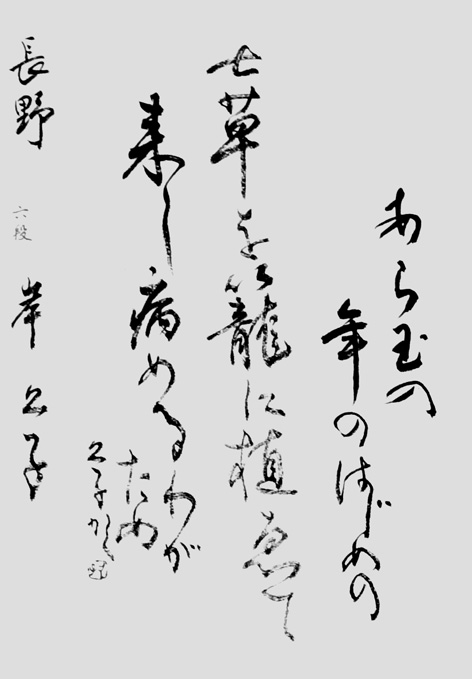 あら玉の
年のはじめの
七草を籠に植ゑて
来し病める
わが
ため
公子
長野 六段 岸公子